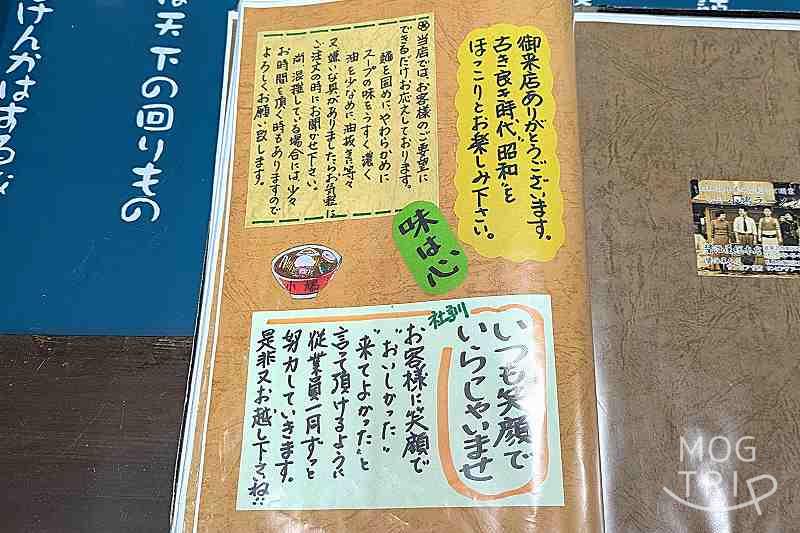 御来店ありがとうございます。
古き良き時代〝昭和〟を
ほっこりとお楽しみ下さい。
当店では、お客様のご要望に
できるだけお応えしております。
麺を固めに、やわらかめに
スープの味をうすく、濃く
油を少なめに、油抜き等々
又嫌いな具がありましたらお気軽に
ご注文の時にお聞かせ下さい。
尚、混雑している場合には、少々
お時間を頂く時もありますので
よろしくお願い致します。
味は心
社訓
いつも笑顔で
いらっしゃいませ
お客様に〝笑顔で
〝おいしかった〟
〝来てよかった〟と
言って頂けるように
従業員一同ずっと
努力していきます。
是非又お越し下さいね!!
は天下の回りもの
けんかはするな
MOG
TRIP